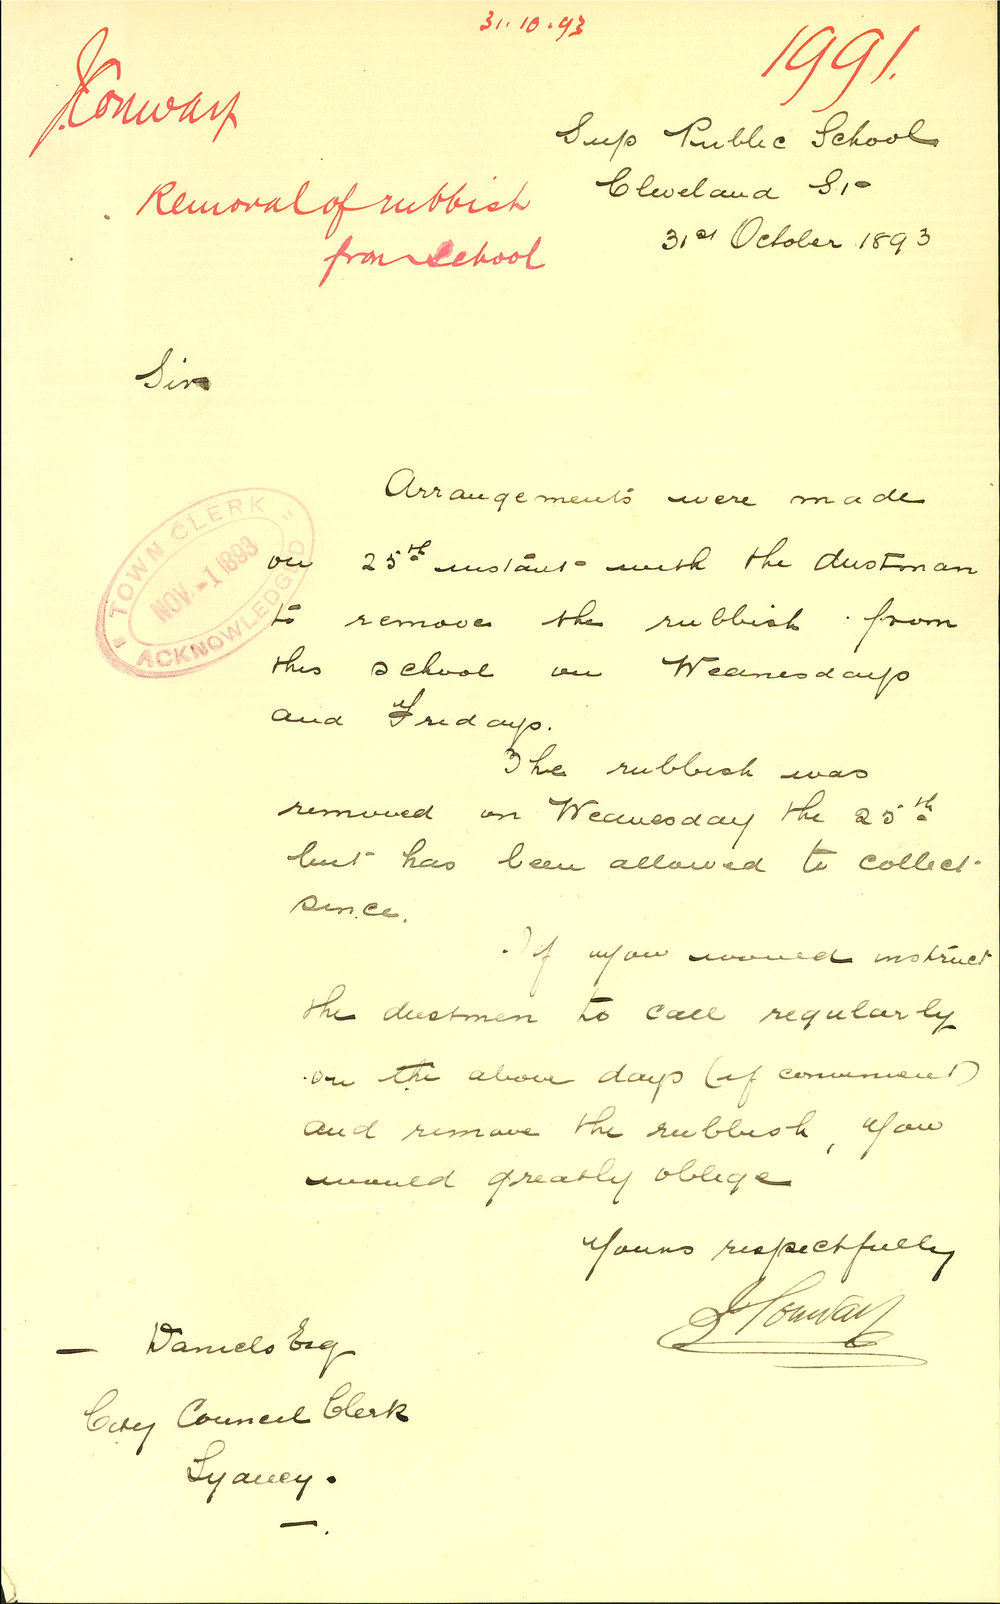 31.10.93
1991.
J. Conway
Removal of rubbish
from School
Sup Public School
Cleveland St
31st October 1893
Sir
TOWN CLERK
NOV. -1 1893
ACKNOWLEDGED
Arrangements were made
on 25th instant with the dustman
to remove the rubbish from
this school on Wednesdays
and Fridays.
The rubbish was
removed on Wednesday the 25th
but has been allowed to collect
since.
If you would instruct
the dustmen to call regularly
on the above days (if convenient)
and remove the rubbish, you
would greatly oblige
Yours respectfully
J Conway
— Daniels Esq
City Council Clerk
Sydney.